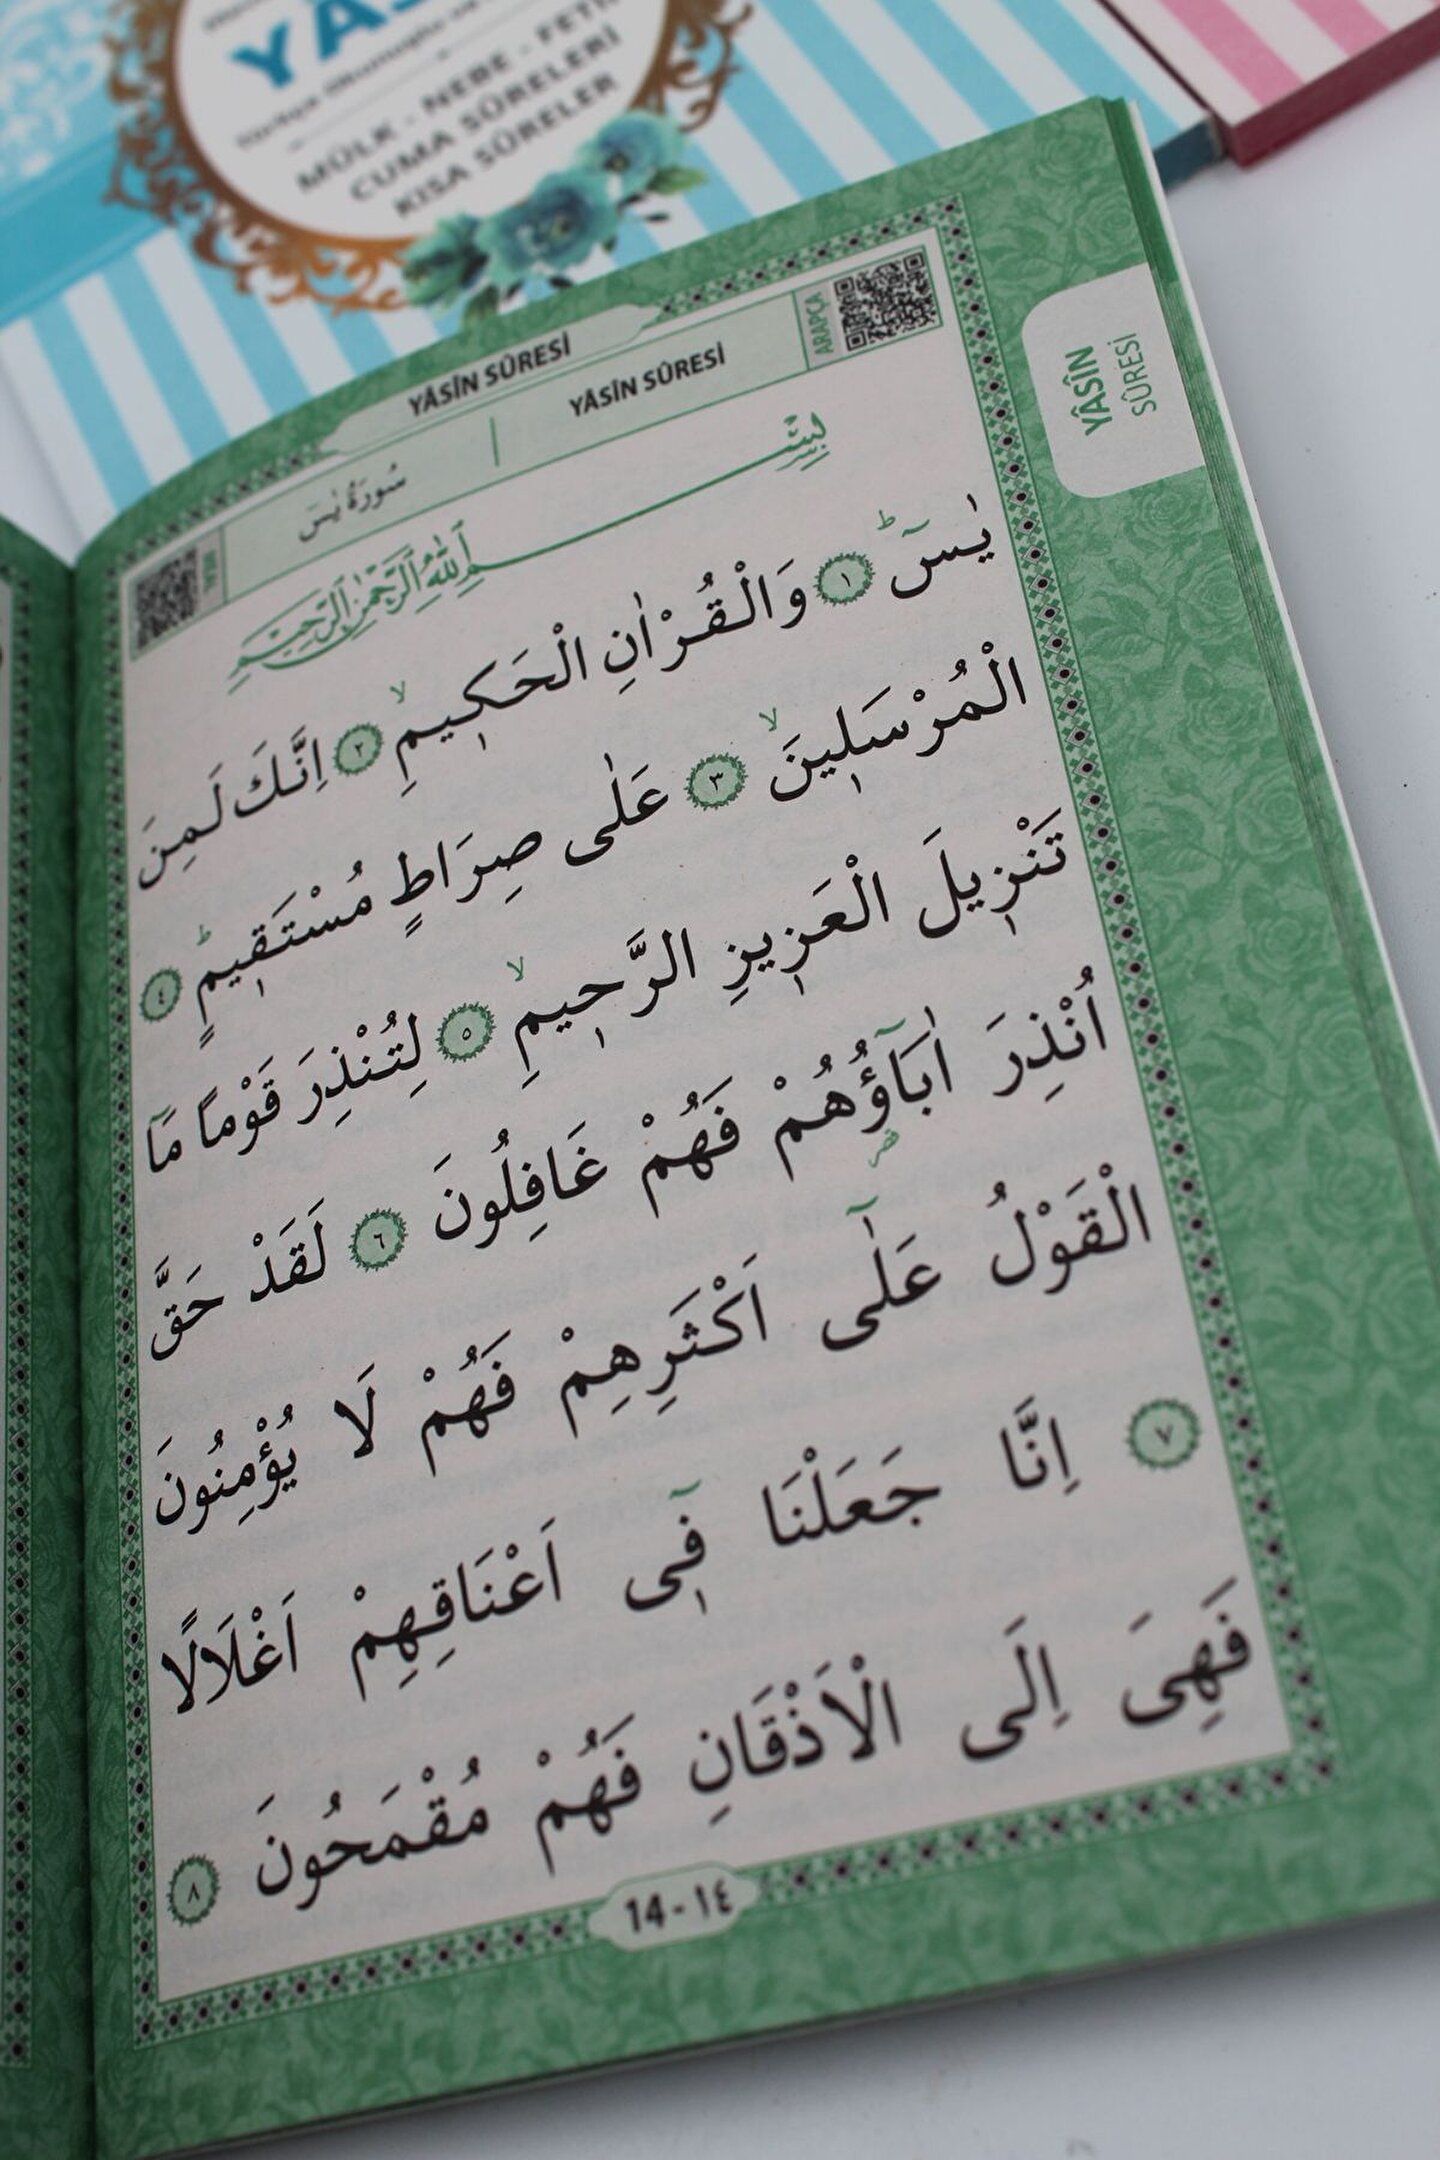 YÂS
MÜLK - NEBE - FETİH
CUMA SÛRELERİ
KISA SÛRELER
YÂSÎN SÛRESİ
سُورَةُ يٰسٓ | YÂSÎN SÛRESİ ARAPÇA
YÂSÎN
SÛRESİ
بِسْمِ اللّٰهِ الرَّحْمٰنِ الرَّح۪يمِ
يٰسٓۜ ﴿١﴾ وَالْقُرْاٰنِ الْحَك۪يمِۙ ﴿٢﴾ اِنَّكَ لَمِنَ
الْمُرْسَل۪ينَۙ ﴿٣﴾ عَلٰى صِرَاطٍ مُسْتَق۪يمٍۜ ﴿٤﴾
تَنْز۪يلَ الْعَز۪يزِ الرَّح۪يمِۙ ﴿٥﴾ لِتُنْذِرَ قَوْمًا مَٓا
اُنْذِرَ اٰبَٓاؤُ۬هُمْ فَهُمْ غَافِلُونَ ﴿٦﴾ لَقَدْ حَقَّ
الْقَوْلُ عَلٰٓى اَكْثَرِهِمْ فَهُمْ لَا يُؤْمِنُونَ
﴿٧﴾ اِنَّا جَعَلْنَا ف۪ٓي اَعْنَاقِهِمْ اَغْلَالًا
فَهِيَ اِلَى الْاَذْقَانِ فَهُمْ مُقْمَحُونَ ﴿٨﴾
14 - ١٤